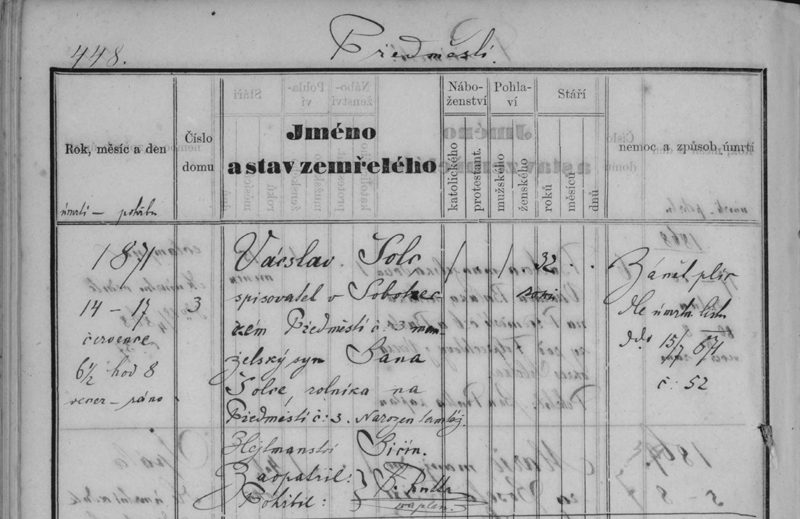 448.
Předměstí.
Rok, měsíc a den
úmrtí — pohřbu
Číslo domu
Jméno
a stav zemřelého
Nábo-
ženství
katolického
protestant.
Pohla-
ví
mužského
ženského
Stáří
roků
měsíců
dnů
nemoc a způsob úmrtí
1871
14 — 17
července
6½ hod 8
večer — ráno
3
Václav Šolc
spisovatel v Sobotec-
kém Předměstí č. 3 man-
želský syn Jana
Šolce, rolníka na
Předměstí č: 3. Narozen tamtéj.
Hejtmanství Jičín.
Zaopatřil:
Pohřbil:
kaplan.
/ / 32 . .
Zánět plic
dle úmrtn. listu
ddo 15/7
č: 52